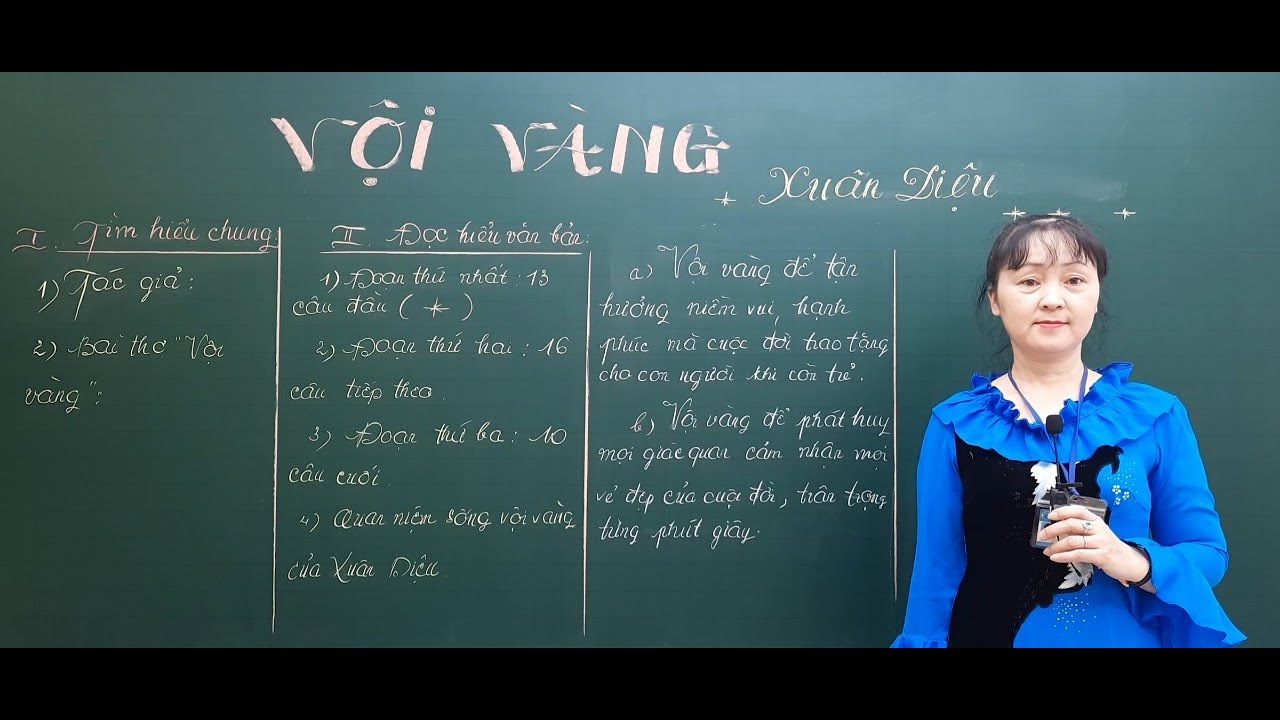 VỘI VÀNG
Xuân Diệu
I. Tìm hiểu chung
1) Tác giả:
2) Bài thơ "Vội
vàng":
II. Đọc hiểu văn bản:
1) Đoạn thứ nhất: 13
câu đầu (*)
2) Đoạn thứ hai: 16
câu tiếp theo.
3) Đoạn thứ ba: 10
câu cuối.
4) Quan niệm sống vội vàng
của Xuân Diệu.
a) Vội vàng để tận
hưởng niềm vui, hạnh
phúc mà cuộc đời trao tặng
cho con người khi còn trẻ.
b) Vội vàng để phát huy
mọi giác quan cảm nhận mọi
vẻ đẹp của cuộc đời, trân trọng
từng phút giây.